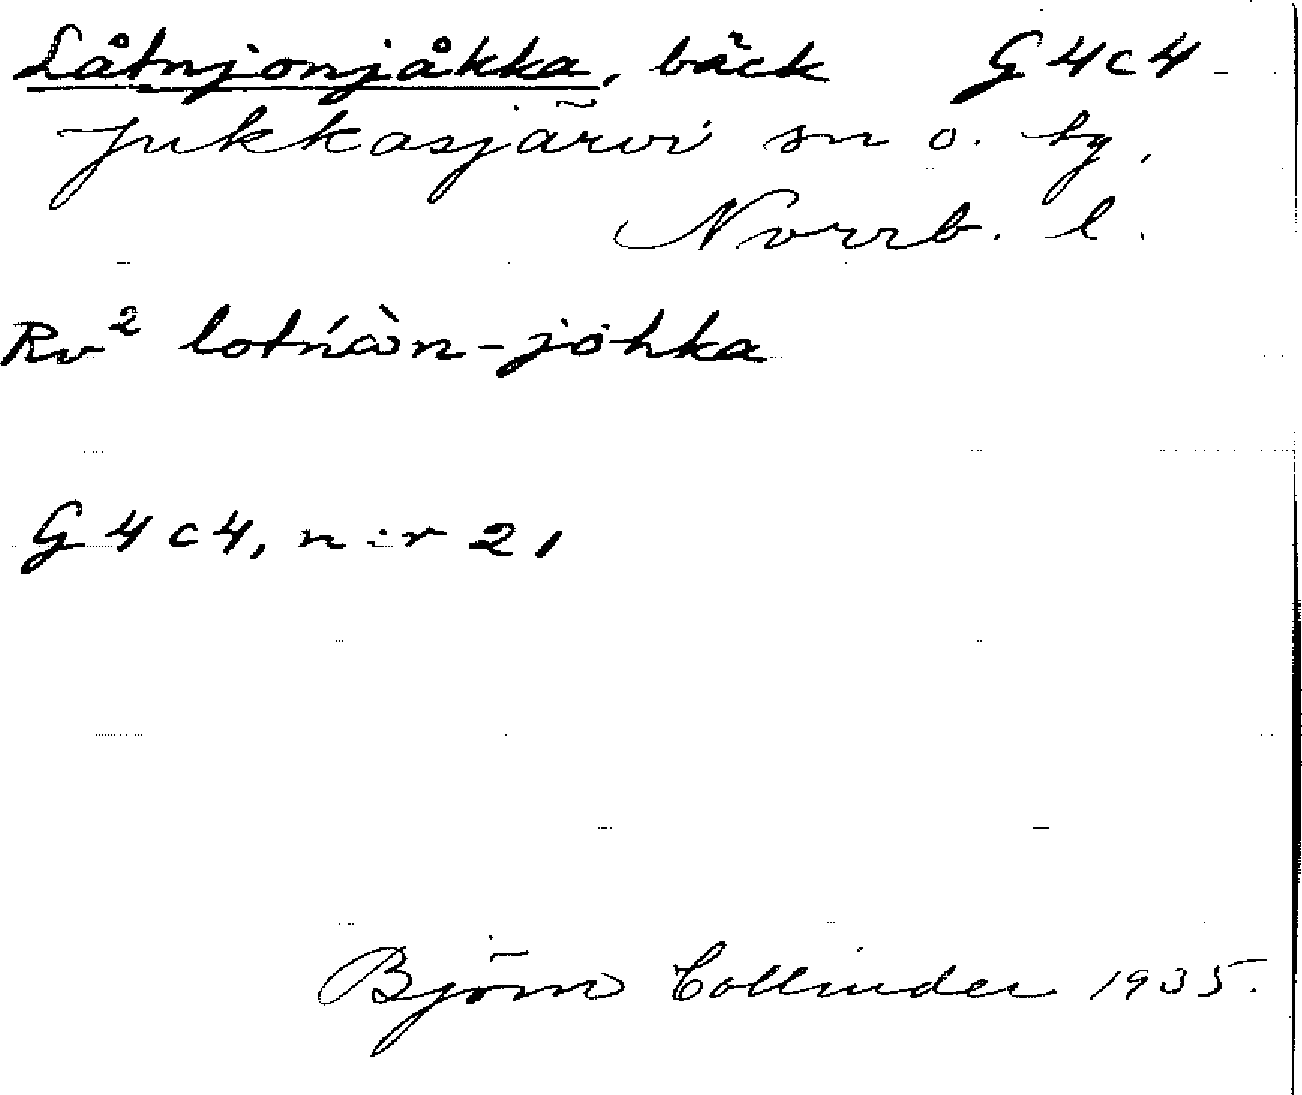 Låtnjonjåkka, bäck G4c4
Jukkasjärvi sn o. tg,
Norrb. l.
Rv² lotńàn-johka
G4c4, n:r 21
Björn Collinder 1935.